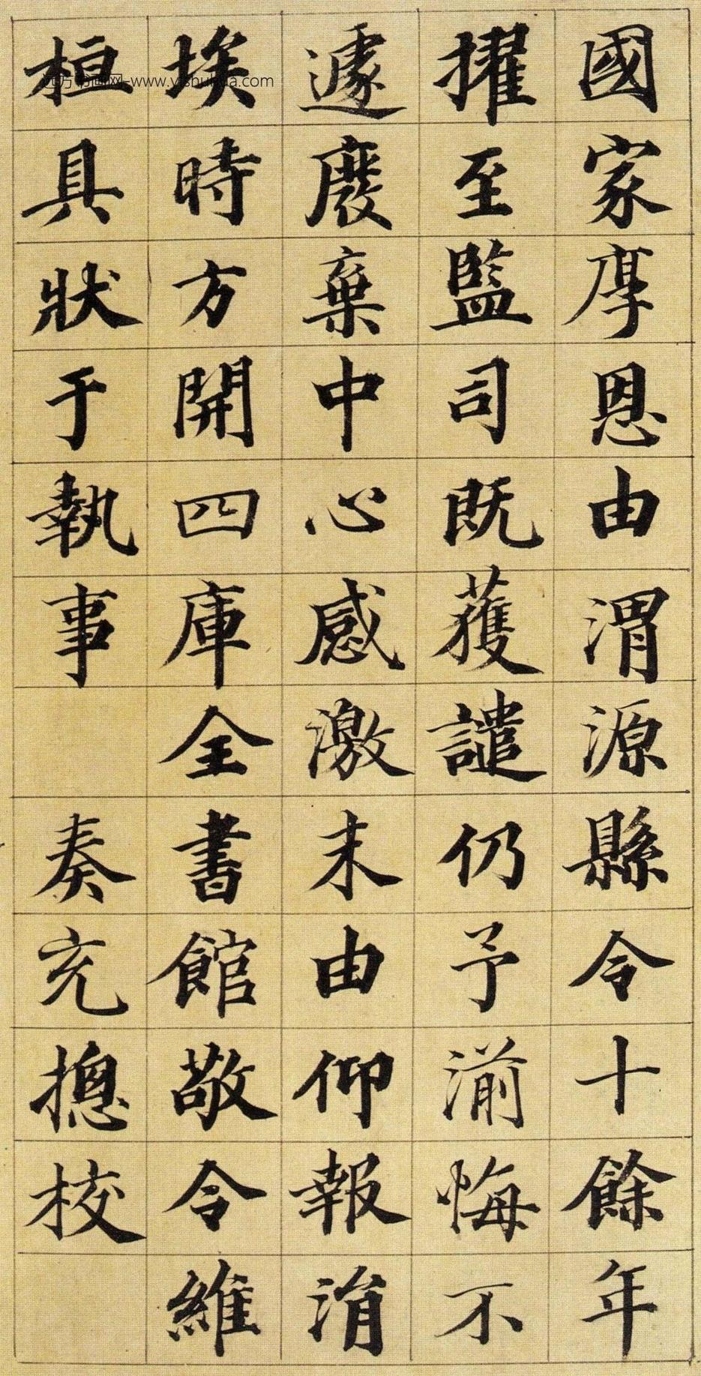 國家厚恩由渭源縣令十餘年
擢至監司既獲譴仍予湔悔不
遽廢棄中心感激末由仰報涓
埃時方開四庫全書館敬令維
桓具狀于執事 奏充摠校
www.yishuzha.com